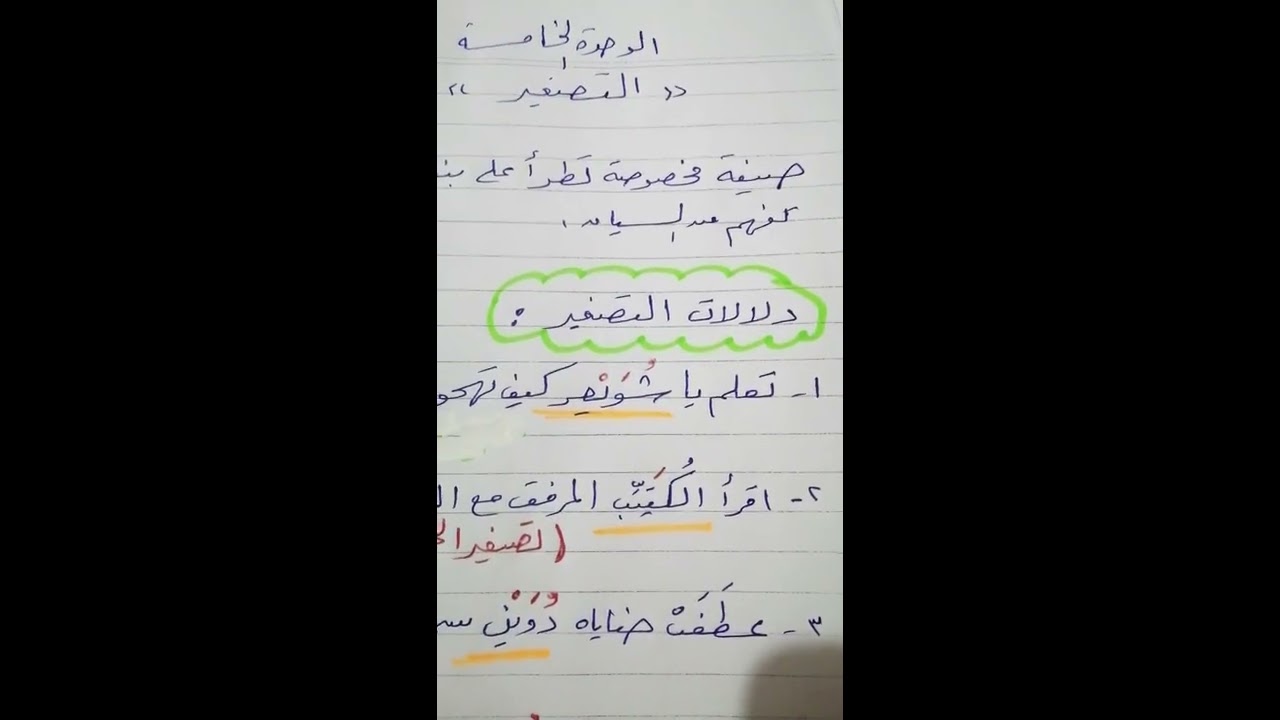 الوحدة الخامسة
« التصغير »
صيغة مخصوصة تطرأ على
تُفهم من السياق .
دلالات التصغير :
١- تعلم يا شُوَيْعِر كيف تهجو
٢- اقرأ الكُتَيِّب المرفق مع
(تصغير
٣- عطَفَتْ حناياه دُوَيْنَ